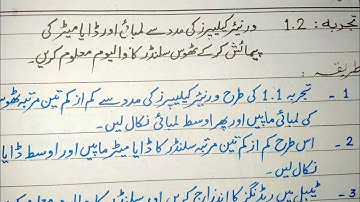 تجربہ: 1.2 ورنیئر کیلیپرز کی مدد سے لمبائی اور ڈایا میٹر کی
پیمائش کر کے ٹھوس سلنڈر کا والیوم معلوم کریں۔
طریقہ:
1 - تجربہ 1.1 کی طرح ورنیئر کیلیپرز کی مدد سے کم از کم تین مرتبہ ٹھوس
کی لمبائی ماپیں اور پھر اوسط لمبائی نکال لیں۔
2 - اس طرح کم از کم تین مرتبہ سلنڈر کا ڈایا میٹر ماپیں اور اوسط ڈایا
نکال لیں۔
3 - ٹیبل میں ریڈنگز کا اندراج کریں اور سلنڈر کا